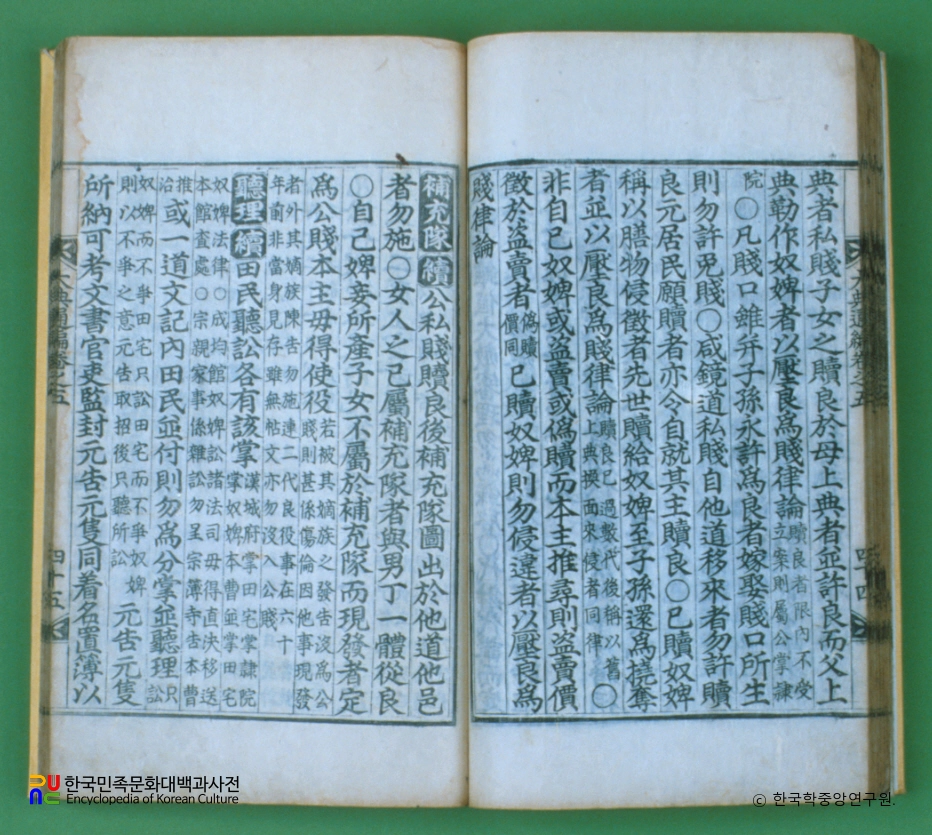 典者私賤子女之贖良於母上典者並許良而父上
典勒作奴婢者以壓良爲賤律論贖良者限內不受立案則屬公掌隸
院○凡賤口雖幷子孫永許爲良者嫁娶賤口所生
則勿許免賤○咸鏡道私賤自他道移來者勿許贖
良元居民願贖者亦令自就其主贖良○已贖奴婢
稱以膳物侵徵者先世贖給奴婢至子孫還爲撓奪
者並以壓良爲賤律論贖良已過數代後稱以舊上典換面來侵者同律○
非自己奴婢或盜賣或僞贖而本主推尋則盜賣價
徵於盜賣者僞贖價同已贖奴婢則勿侵違者以壓良爲
賤律論
大典通編卷之五
四十四
補充隊續公私賤贖良後補充隊圖出於他道他邑
者勿施○女人之已屬補充隊者與男丁一體從良
○自己婢妾所產子女不屬於補充隊而現發者定
爲公賤本主毋得使役若被其嫡族之發告沒爲公賤則甚係傷倫因他事現發
者外其嫡族陳告勿施連二代良役事在六十年前非當身見存雖無帖文亦勿沒入公賤
聽理續田民聽訟各有該掌漢城府掌田宅掌隸院掌奴婢本曹並掌田宅
奴婢法律○成均館奴婢訟諸法司毋得直決移送本館査處○宗親家事係雜訟勿呈宗簿寺告本曹
推治或一道文記內田民並付則勿爲分掌並聽理只訟
奴婢而不爭田宅只訟田宅而不爭奴婢則以不爭之意元告取招後只聽所訟元告元隻
所納可考文書官吏監封元告元隻同着名置簿以
大典通編卷之五
四十五
한국민족문화대백과사전
Encyclopedia of Korean Culture
© 한국학중앙연구원.